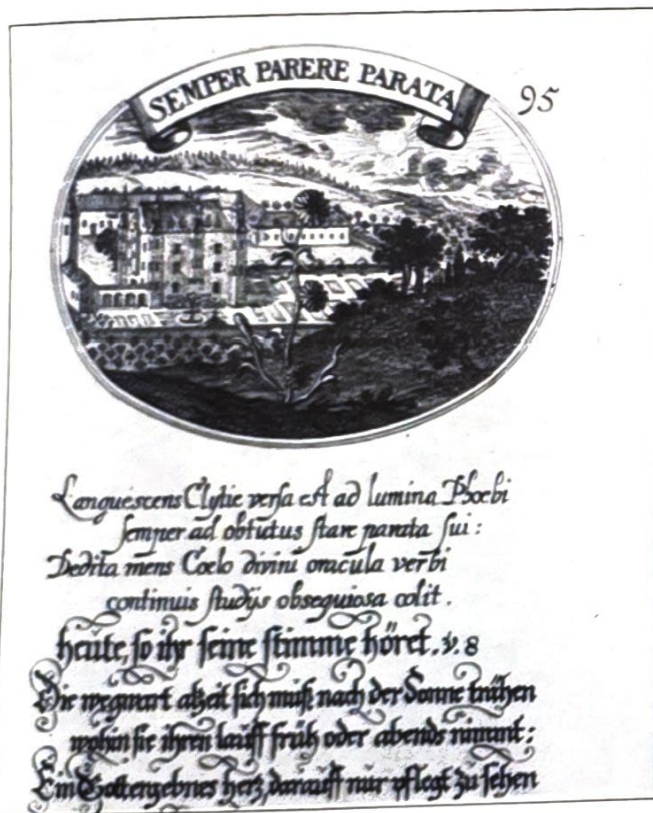 SEMPER PARERE PARATA
95
Languescens Clytie versa est ad lumina Phoebi
semper ad obtutus stare parata sui:
Dedita mens Coelo divini oracula verbi
continuis studijs obsequiosa colit.
heute, so ihr seine stimme höret. v. 8
Die wegwart alzeit sich muß nach der Sonne trühen
wohin sie ihren lauff früh oder abends nimmt:
Ein Gottergebnes herz, darauff nur pflegt zu sehen